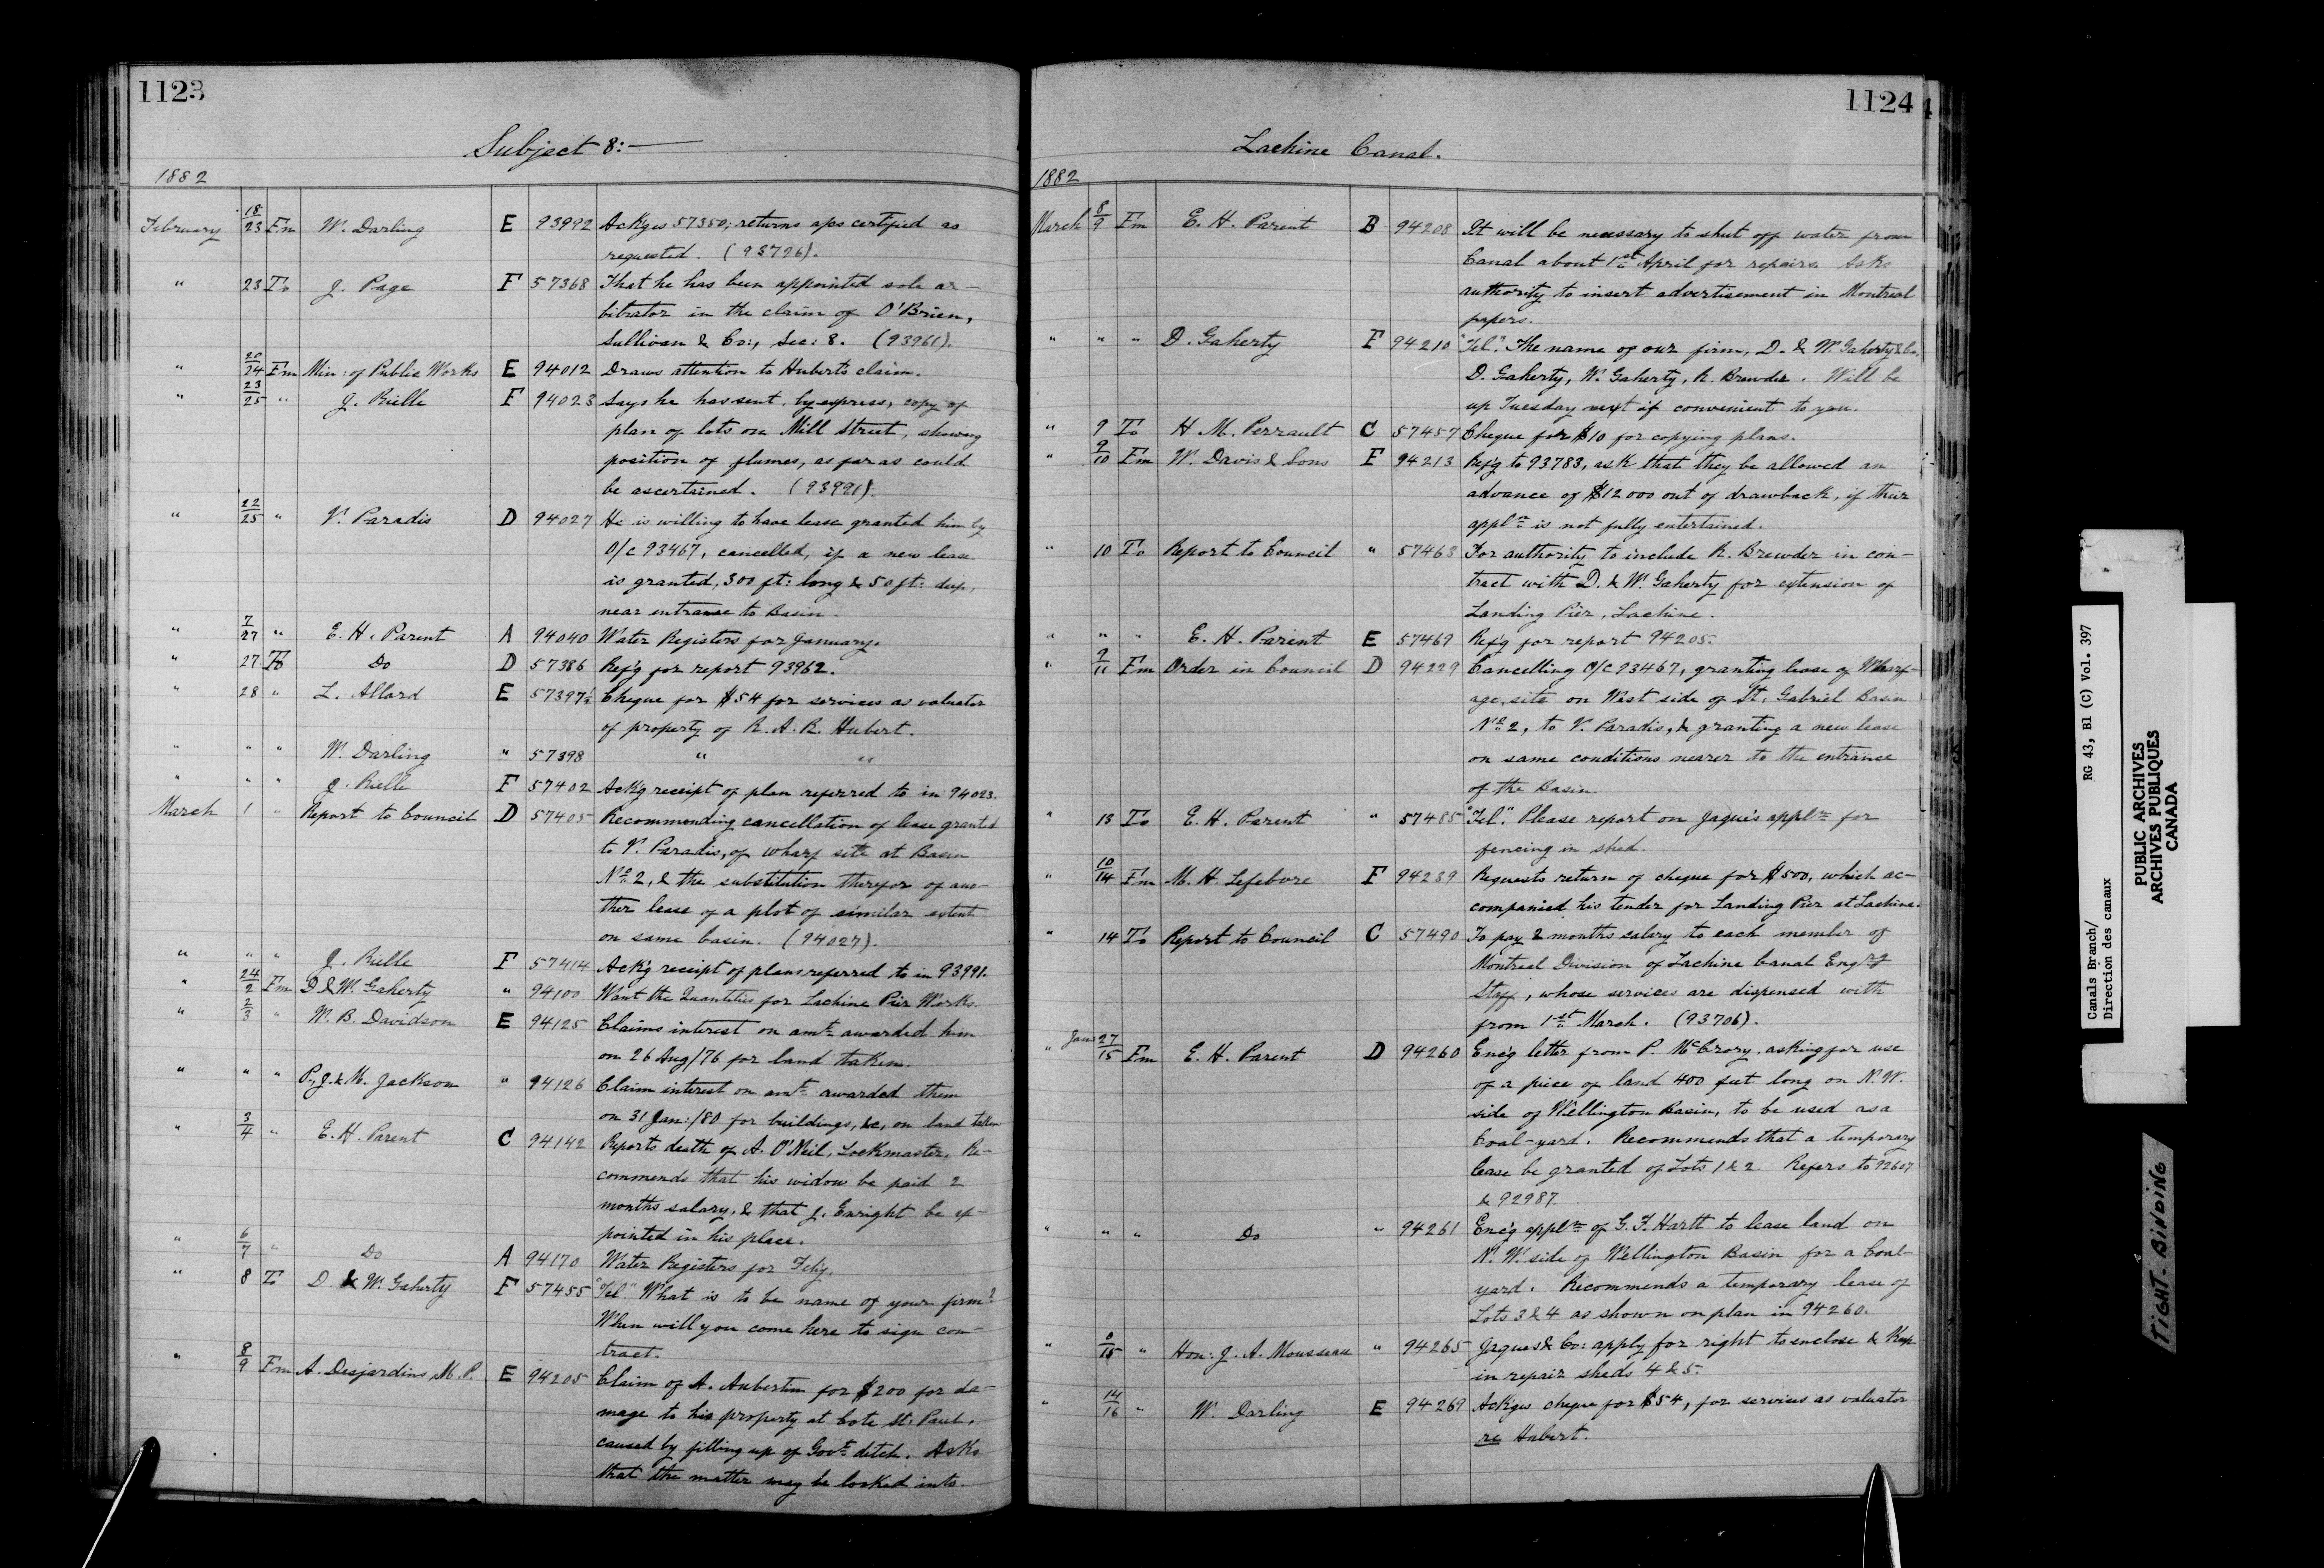 1123
Subject 8:—
1882
February 18/23 Fm W. Darling E 93992 Ackges 57350; returns a/cs certified as
requested. (93726).
" 23 To J. Page F 57368 That he has been appointed sole ar-
bitrator in the claim of O'Brien,
Sullivan & Co:, Sec: 8. (93961).
" 20/24 Fm Min: of Public Works E 94012 Draws attention to Hubert's claim.
" 23/25 " J. Rielle F 94023 Says he has sent, by express, copy of
plan of lots on Mill Street, showing
position of flumes, as far as could
be ascertained. (93991).
" 22/25 " V. Paradis D 94027 He is willing to have lease granted him by
O/C 93467, cancelled, if a new lease
is granted, 300 ft: long & 50 ft: deep,
near entrance to Basin.
" 7/27 " E. H. Parent A 94040 Water Registers for January.
" 27 To Do D 57386 Ref'g for report 93962.
" 28 " L. Allard E 57397½ Cheque for $54 for services as valuator
of property of R. A. R. Hubert.
" " " W. Darling " 57398 " "
" " " J. Rielle F 57402 Ack'g receipt of plan referred to in 94023.
March 1 " Report to Council D 57405 Recommending cancellation of lease granted
to V. Paradis, of wharf site at Basin
No 2, & the substitution therefor of ano-
ther lease of a plot of similar extent
on same basin. (94027).
" " " J. Rielle F 57414 Ack'g receipt of plans referred to in 93991.
" 24/2 Fm D & W. Gaherty " 94100 Want the Quantities for Lachine Pier Works.
" 2/3 " W. B. Davidson E 94125 Claims interest on amt. awarded him
on 26 Aug/76 for land taken.
" " " P., J. & M. Jackson " 94126 Claim interest on amt. awarded them
on 31 Jan:/80 for buildings, &c, on land taken
" 3/4 " E. H. Parent C 94142 Reports death of A. O'Neil, Lockmaster. Re-
commends that his widow be paid 2
months salary, & that J. Enright be ap-
pointed in his place.
" 6/7 " Do A 94170 Water Registers for Feby.
" 8 To D. & W. Gaherty F 57455 "Tel." What is to be name of your firm?
When will you come here to sign con-
tract.
" 8/9 Fm A. Desjardins M. P. E 94205 Claim of A. Aubertin for $200 for da-
mage to his property at Cote St. Paul,
caused by filling up of Govt. ditch. Asks
that the matter may be looked into.
1124
Lachine Canal.
1882
March 8/9 Fm E. H. Parent B 94208 It will be necessary to shut off water from
Canal about 1st April for repairs. Asks
authority to insert advertisement in Montreal
papers.
" " " D. Gaherty F 94210 "Tel." The name of our firm, D. & W. Gaherty & Co,
D. Gaherty, W. Gaherty, R. Brewder. Will be
up Tuesday next if convenient to you.
" 9 To H. M. Perrault C 57457 Cheque for $10 for copying plans.
" 9/10 Fm W. Davis & Sons F 94213 Ref'g to 93783, ask that they be allowed an
advance of $12000 out of drawback, if their
appln is not fully entertained.
" 10 To Report to Council " 57463 For authority to include R. Brewder in con-
tract with D. & W. Gaherty for extension of
Landing Pier, Lachine.
" " " E. H. Parent E 57469 Ref'g for report 94205.
" 9/11 Fm Order in Council D 94229 Cancelling O/C 93467, granting lease of Wharf-
age, site on West side of St. Gabriel Basin
No 2, to V. Paradis, & granting a new lease
on same conditions nearer to the entrance
of the Basin.
" 13 To E. H. Parent " 57485 "Tel." Please report on Jaques appln for
fencing in shed.
" 10/14 Fm M. H. Lefebvre F 94239 Requests return of cheque for $500, which ac-
companied his tender for Landing Pier at Lachine.
" 14 To Report to Council C 57490 To pay 2 months salary to each member of
Montreal Division of Lachine Canal Engrg
Staff, whose services are dispensed with
from 1st March. (93706).
" Jan 27/15 Fm E. H. Parent D 94260 Enc'g letter from P. McCrory, asking for use
of a piece of land 400 feet long on N. W.
side of Wellington Basin, to be used as a
Coal-yard. Recommends that a temporary
lease be granted of Lots 1 & 2. Refers to 92607
& 92987.
" " " Do " 94261 Enc'g appln of G. F. Hartt to lease land on
N. W. side of Wellington Basin for a Coal-
yard. Recommends a temporary lease of
Lots 3 & 4 as shown on plan in 94260.
" /15 " Hon: J. A. Mousseau " 94265 Jaques & Co: apply for right to enclose & keep
in repair sheds 4 & 5.
" 14/16 " W. Darling E 94269 Ackges cheque for $54, for services as valuator
re Hubert.
Canals Branch/ RG 43, B1 (C) Vol. 397
Direction des canaux
PUBLIC ARCHIVES
ARCHIVES PUBLIQUES
CANADA
TIGHT BINDING